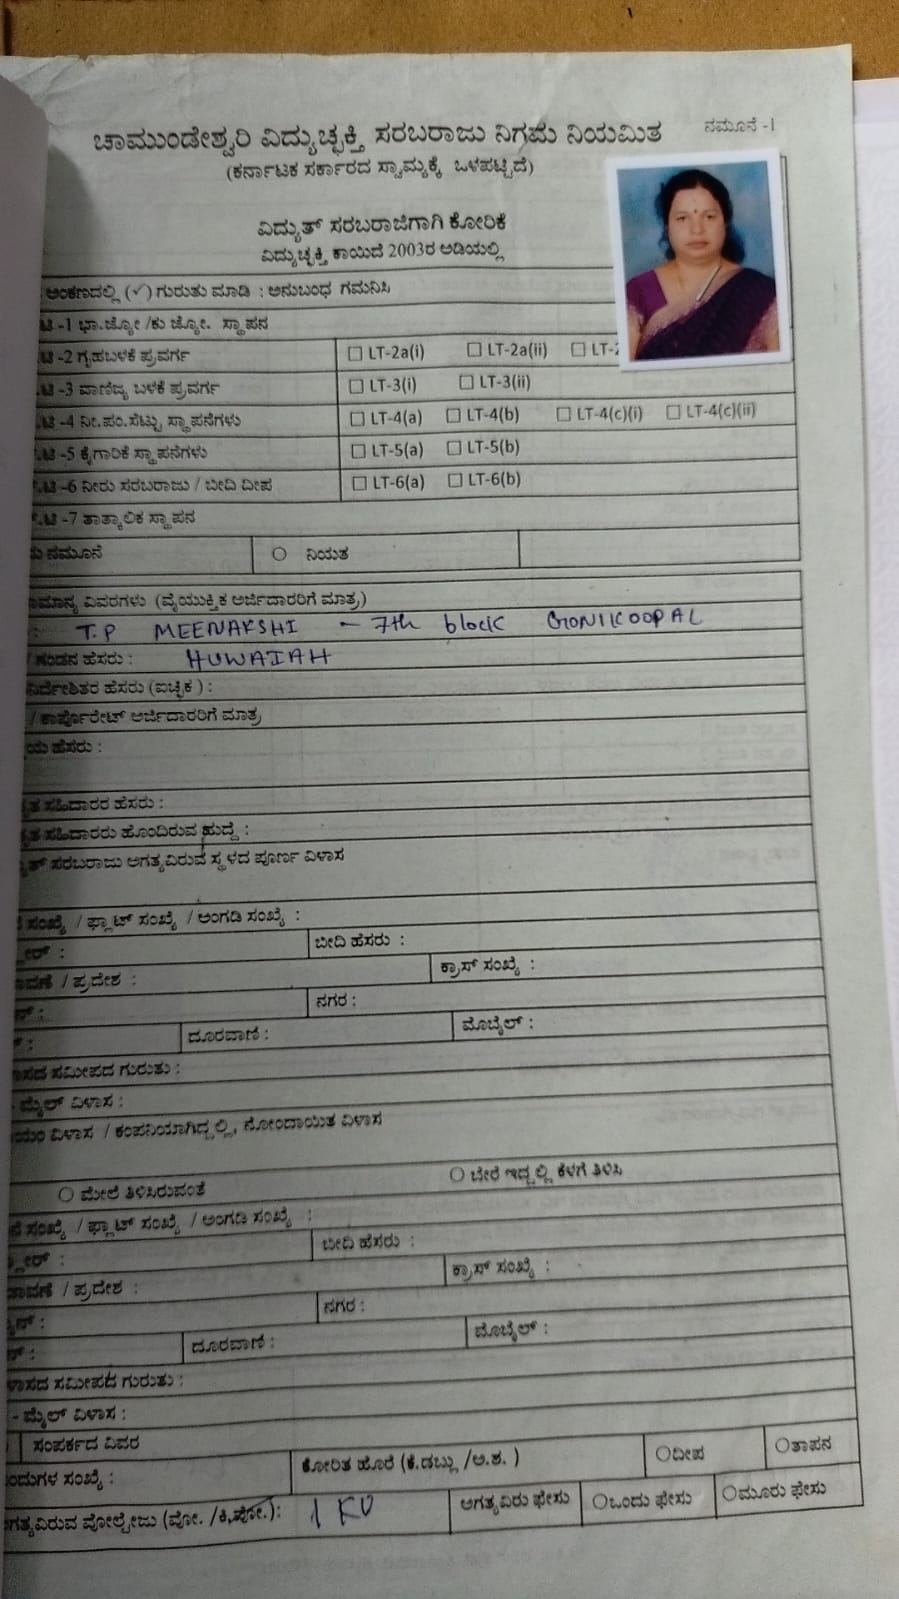 ನಮೂನೆ -I
ಚಾಮುಂಡೇಶ್ವರಿ ವಿದ್ಯುಚ್ಛಕ್ತಿ ಸರಬರಾಜು ನಿಗಮ ನಿಯಮಿತ
(ಕರ್ನಾಟಕ ಸರ್ಕಾರದ ಸ್ವಾಮ್ಯಕ್ಕೆ ಒಳಪಟ್ಟಿದೆ)
ವಿದ್ಯುತ್ ಸರಬರಾಜಿಗಾಗಿ ಕೋರಿಕೆ
ವಿದ್ಯುಚ್ಛಕ್ತಿ ಕಾಯಿದೆ 2003ರ ಅಡಿಯಲ್ಲಿ
ಅಂಕಣದಲ್ಲಿ (✓) ಗುರುತು ಮಾಡಿ : ಅನುಬಂಧ ಗಮನಿಸಿ
-1 ಭಾ.ಜ್ಯೋ /ಕು ಜ್ಯೋ. ಸ್ಥಾಪನ
-2 ಗೃಹಬಳಕೆ ಪ್ರವರ್ಗ ☐ LT-2a(i) ☐ LT-2a(ii) ☐
-3 ವಾಣಿಜ್ಯ ಬಳಕೆ ಪ್ರವರ್ಗ ☐ LT-3(i) ☐ LT-3(ii)
-4 ನೀ.ಪಂ.ಸೆಟ್ಟು ಸ್ಥಾಪನೆಗಳು ☐ LT-4(a) ☐ LT-4(b) ☐ LT-4(c)(i) ☐ LT-4(c)(ii)
-5 ಕೈಗಾರಿಕೆ ಸ್ಥಾಪನೆಗಳು ☐ LT-5(a) ☐ LT-5(b)
-6 ನೀರು ಸರಬರಾಜು / ಬೀದಿ ದೀಪ ☐ LT-6(a) ☐ LT-6(b)
-7 ತಾತ್ಕಾಲಿಕ ಸ್ಥಾಪನ
ನಮೂನೆ ○ ನಿಯತ
ವಿವರಗಳು (ವೈಯುಕ್ತಿಕ ಅರ್ಜಿದಾರರಿಗೆ ಮಾತ್ರ)
: T.P MEENAKSHI - 7th block GONIKOOPAL
ಗಂಡನ ಹೆಸರು : HUWAIAH
ನಿರ್ದೇಶಿತರ ಹೆಸರು (ಐಚ್ಛಿಕ ) :
/ ಕಾರ್ಪೊರೇಟ್ ಅರ್ಜಿದಾರರಿಗೆ ಮಾತ್ರ
ಹೆಸರು :
ಸಹಿದಾರರ ಹೆಸರು :
ಸಹಿದಾರರು ಹೊಂದಿರುವ ಹುದ್ದೆ :
ಸರಬರಾಜು ಅಗತ್ಯವಿರುವ ಸ್ಥಳದ ಪೂರ್ಣ ವಿಳಾಸ
ಸಂಖ್ಯೆ / ಫ್ಲಾಟ್ ಸಂಖ್ಯೆ / ಅಂಗಡಿ ಸಂಖ್ಯೆ :
ಬೀದಿ ಹೆಸರು :
/ ಪ್ರದೇಶ : ಕ್ರಾಸ್ ಸಂಖ್ಯೆ :
ನಗರ :
ದೂರವಾಣಿ : ಮೊಬೈಲ್ :
ಸಮೀಪದ ಗುರುತು :
- ಮೈಲ್ ವಿಳಾಸ :
ವಿಳಾಸ / ಕಂಪನಿಯಾಗಿದ್ದಲ್ಲಿ, ನೋಂದಾಯಿತ ವಿಳಾಸ
○ ಮೇಲೆ ತಿಳಿಸಿರುವಂತೆ ○ ಬೇರೆ ಇದ್ದಲ್ಲಿ ಕೆಳಗೆ ತಿಳಿಸಿ
ಸಂಖ್ಯೆ / ಫ್ಲಾಟ್ ಸಂಖ್ಯೆ / ಅಂಗಡಿ ಸಂಖ್ಯೆ :
ಬೀದಿ ಹೆಸರು :
/ ಪ್ರದೇಶ : ಕ್ರಾಸ್ ಸಂಖ್ಯೆ :
ನಗರ :
ದೂರವಾಣಿ : ಮೊಬೈಲ್ :
ಸಮೀಪದ ಗುರುತು :
- ಮೈಲ್ ವಿಳಾಸ :
ಸಂಪರ್ಕದ ವಿವರ
ಸಂಖ್ಯೆ : ಕೋರಿತ ಹೊರೆ (ಕೆ.ಡಬ್ಲು /ಅ.ಶ. ) ○ದೀಪ ○ತಾಪನ
ವೋಲ್ಟೇಜು (ವೋ. /ಕಿ.ವೋ.): 1 KV ಅಗತ್ಯವಿರು ಫೇಸು ○ಒಂದು ಫೇಸು ○ಮೂರು ಫೇಸು